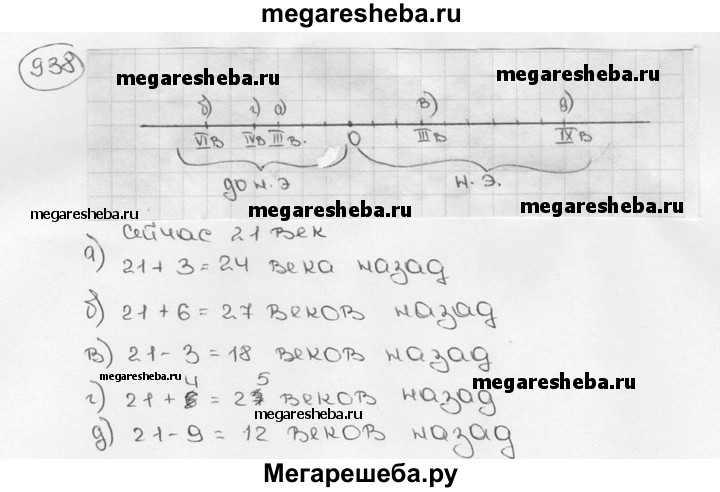 megaresheba.ru
938
megaresheba.ru
megaresheba.ru
б) г) а) в) д)
VI в IV в III в. 0 III в IX в
до н.э н.э.
megaresheba.ru
megaresheba.ru
сейчас 21 век
а) 21 + 3 = 24 века назад
б) 21 + 6 = 27 веков назад
в) 21 - 3 = 18 веков назад
megaresheba.ru
megaresheba.ru
г) 21 + 4 = 25 веков назад
megaresheba.ru
д) 21 - 9 = 12 веков назад
Мегарешеба.ру